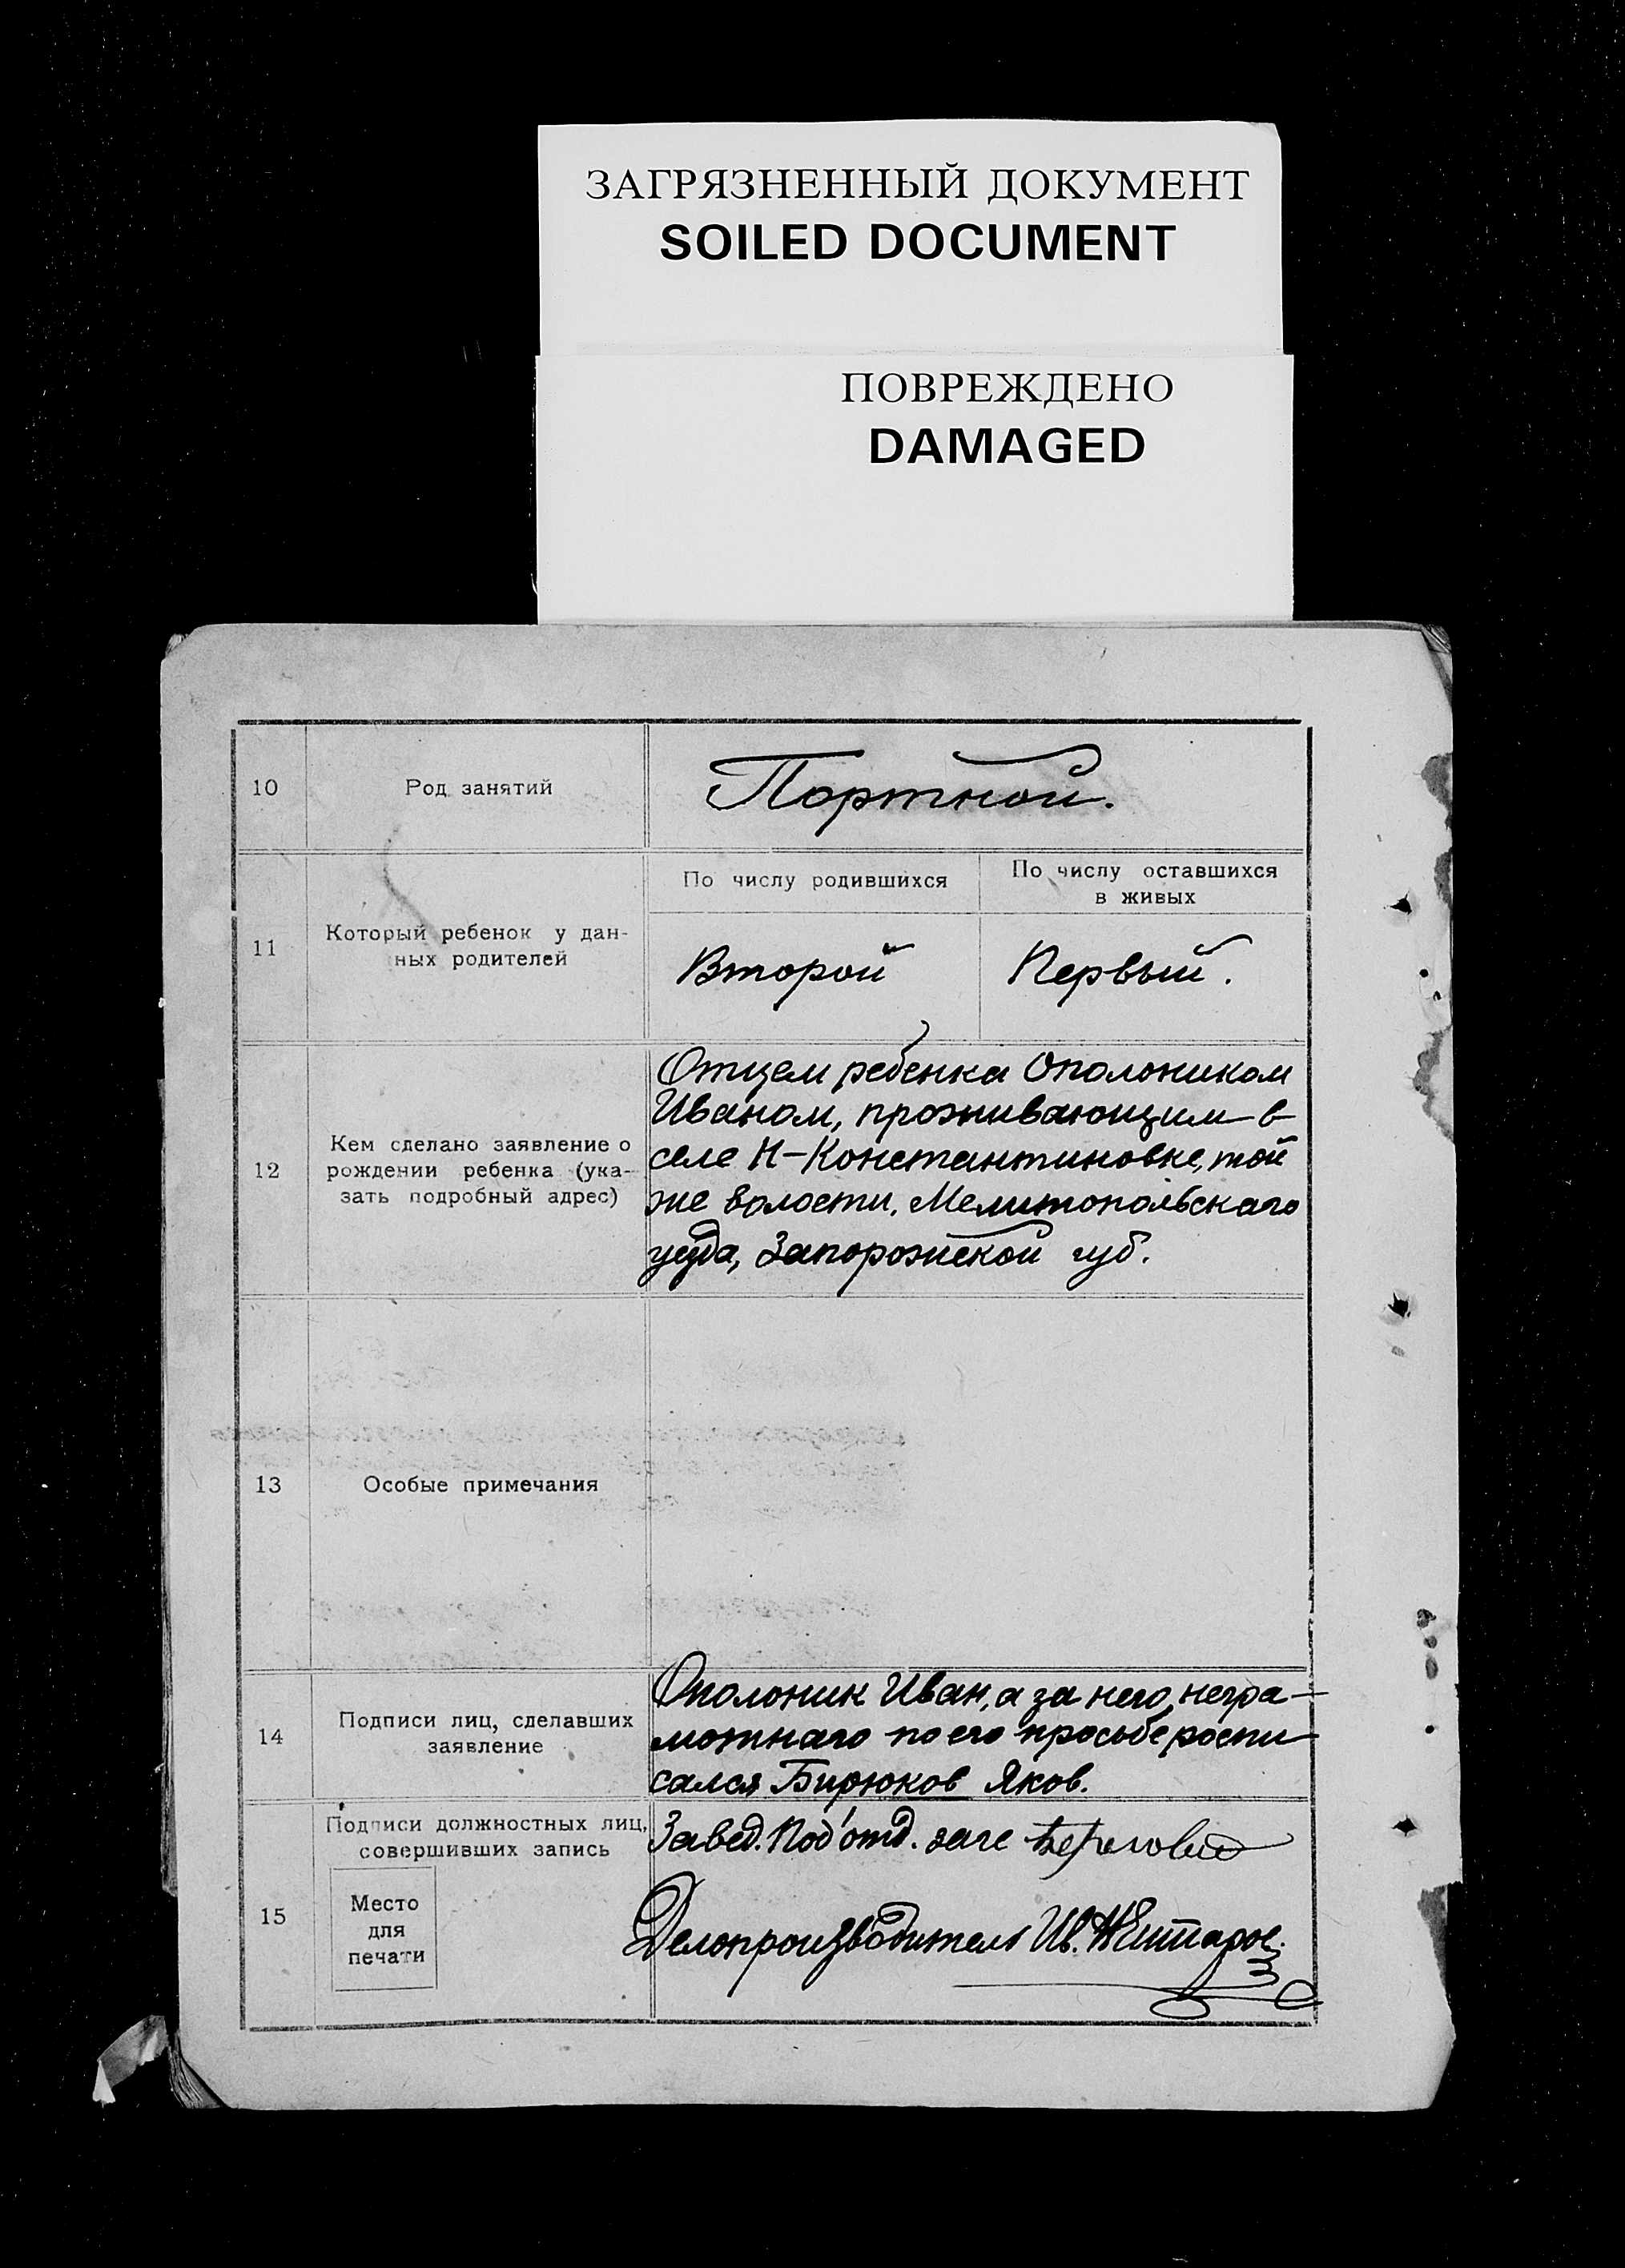 ЗАГРЯЗНЕННЫЙ ДОКУМЕНТ
SOILED DOCUMENT
ПОВРЕЖДЕНО
DAMAGED
10
Род занятий
Портной.
11
Который ребенок у дан-
ных родителей
По числу родившихся
По числу оставшихся
в живых
Второй
Первый.
12
Кем сделано заявление о
рождении ребенка (ука-
зать подробный адрес)
Отцем ребенка Ополоником
Иваном, проживающим в
селе Н-Константиновке, той
же волости, Мелитопольскаго
уезда, Запорожской губ.
13
Особые примечания
14
Подписи лиц, сделавших
заявление
Ополоник Иван, а за него, негра-
мотнаго по его просьбе роспи
сался Бирюков Яков.
15
Подписи должностных лиц,
совершивших запись
Место
для
печати
Завед. Под'отд. загс
Делопроизводитель Ив.